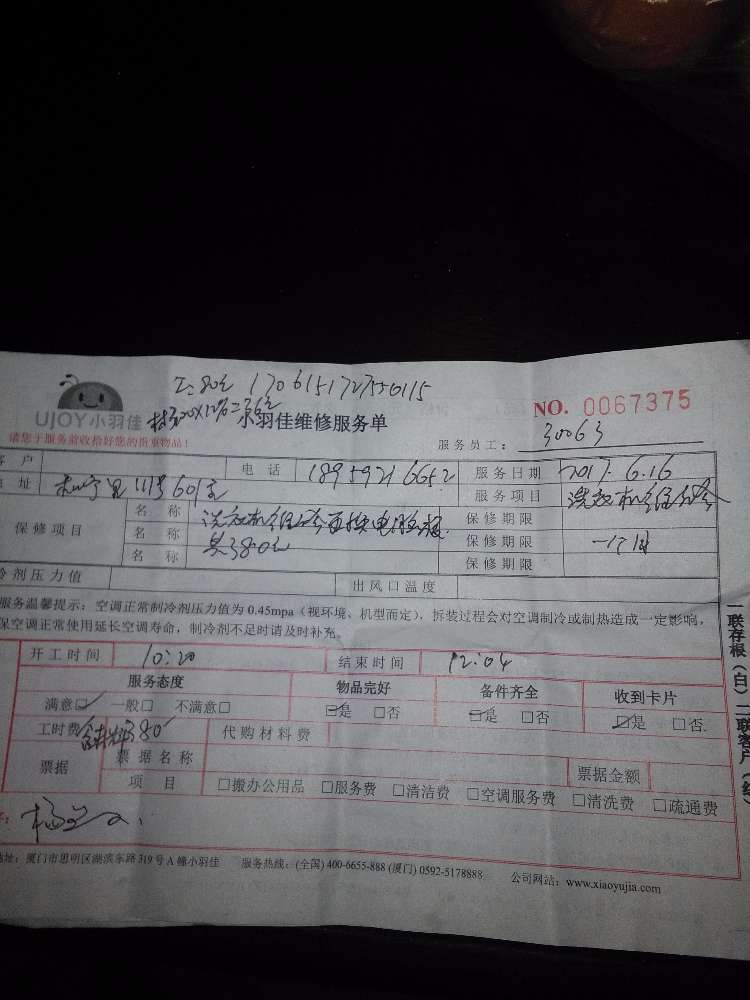 工:80元 1706151727550115
UJOY小羽佳
小羽佳维修服务单
NO. 0067375
请您于服务前收拾好您的贵重物品!
服务员工: 30063
户 电话 18959216652 服务日期 2017.6.16
址 111号601室 服务项目 洗衣机维修
保修项目 名称 洗衣机维修更换电脑板 保修期限
名称 共380元 保修期限 一个月
名称 保修期限
冷剂压力值 出风口温度
服务温馨提示: 空调正常制冷剂压力值为 0.45mpa (视环境、机型而定), 拆装过程会对空调制冷或制热造成一定影响,
保空调正常使用延长空调寿命, 制冷剂不足时请及时补充。
开工时间 10:20 结束时间 12:04
服务态度 物品完好 备件齐全 收到卡片
满意☑ 一般□ 不满意□ ☑是 □否 ☑是 □否 ☑是 □否
工时费 380 代购材料费
票据 票据名称 票据金额
项目 □搬办公用品 □服务费 □清洁费 □空调服务费 □清洗费 □疏通费
地址: 厦门市思明区湖滨东路319号A幢小羽佳 服务热线: (全国) 400-6655-888 (厦门) 0592-5178888 公司网站: www.xiaoyujia.com
一联存根(白)二联客户(红